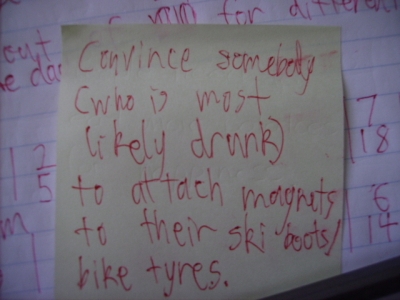 out of min for different
Convince somebody
(who is most
likely drunk)
to attach magnets
to their ski boots/
bike tyres.
7
18
1 2
5
6
14
m
1